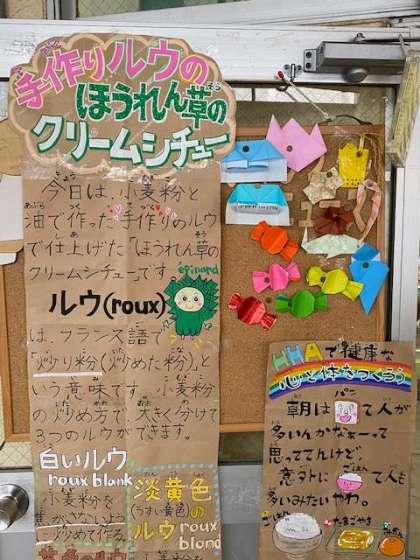 手作りルウの
ほうれん草の
クリームシチュー
今日は、小麦粉と
油で作った手作りのルウ
で仕上げた「ほうれん草の
クリームシチュー」です。
épinard
ルウ(roux)
は、フランス語で
「炒り粉(炒めた粉)」と
いう意味です。小麦粉
の炒め方で、大きく分けて
3つのルウができます。
白いルウ
roux blank
小麦粉を
焦がさないよう
炒めて作る
淡黄色
(うすい黄色)
のルウ roux
blond
HHAで健康な
心と体をつくろう
パン
朝は て人が
多いんかなぁーって
思っててんけど、
意外に ごはん て人も
多いみたいやわ。
ごはん
たまごやき